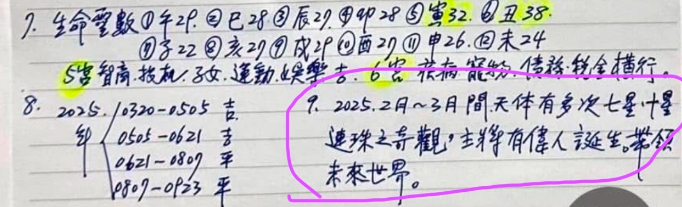 7. 生命靈數①午29.②巳28③辰27.④卯28⑤寅32.⑥丑38.
⑦子22⑧亥27⑨戌29⑩酉27⑪申26.⑫未24
5宮智商.投机.子女.運動.娛樂吉.6宮 疾病.寵物.債務.稅金橫行。
8. 2025年
0320-0505 吉
0505-0621 吉
0621-0807 平
0807-0923 平
9. 2025.2月~3月間天体有多次七星.十星
連珠之奇觀,主將有偉人誕生。帶領
未來世界。